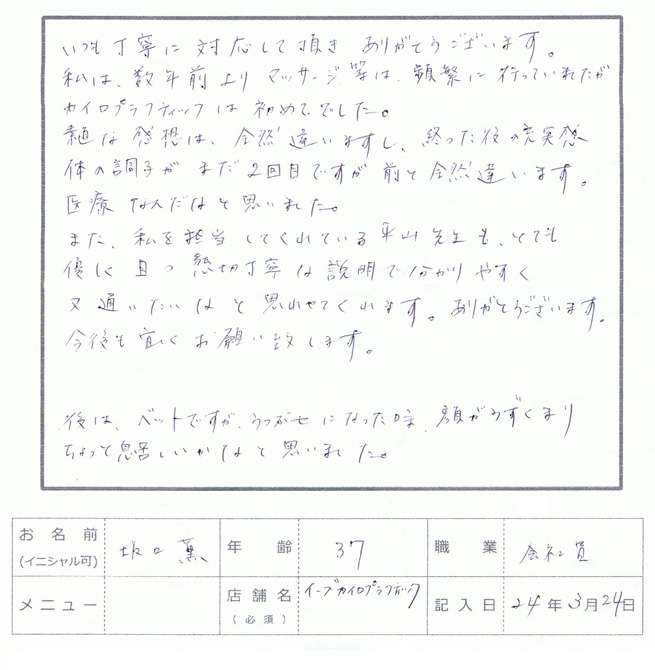 いつも丁寧に対応して頂き ありがとうございます。
私は、数年前より マッサージ等は、頻繁に行っていましたが
カイロプラクティックは初めてでした。
素直な感想は、全然違いますし、終った後の充実感
体の調子が まだ2回目ですが 前と全然違います。
医療なんだなと思いました。
また、私を担当してくれている平山先生も、とても
優しく 且つ 懇切丁寧な説明で分かりやすく
又通いたいなと思わせてくれます。ありがとうございます。
今後も宜しくお願い致します。
後は、ベットですが、うつぶせになった時、顔がうずくまり
ちょっと息苦しいかなと思いました。
お名前 坂口 薫 年齢 37 職業 会社員
(イニシャル可)
メニュー 店舗名 イーブカイロプラクティック 記入日 24年3月24日
(必須)